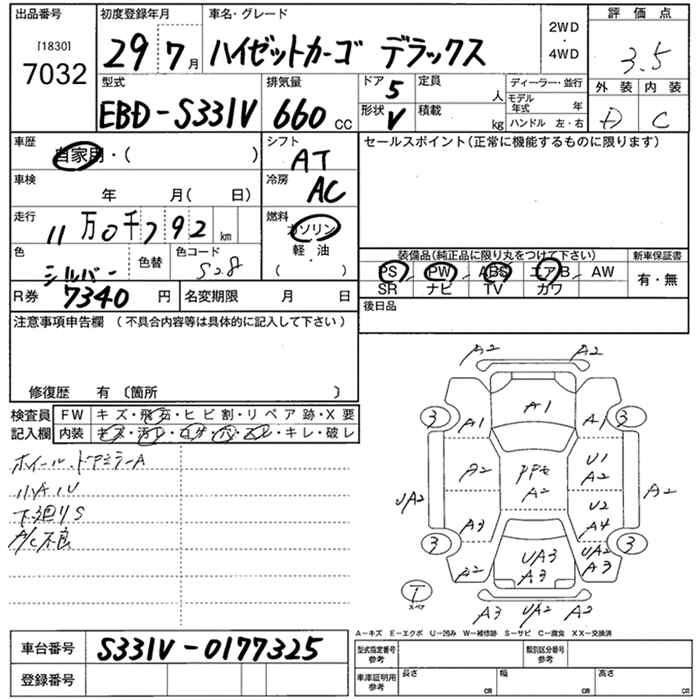 出品番号 初度登録年月 車名・グレード 2WD ・ 4WD 評価点
[1830] 7032 29 7月 ハイゼットカーゴ デラックス 3.5
型式 排気量 ドア 5 定員 人 ディーラー・並行 外装 内装
EBD-S331V 660 cc 形状 V 積載 kg モデル年式 年 ハンドル 左・右 D C
車歴 自家用・( ) シフト AT セールスポイント(正常に機能するものに限ります)
車検 年 月( 日) 冷房 AC
走行 11万0千792km 燃料 ガソリン
軽・油
( )
色 シルバー 色替 色コード S28
装備品(純正品に限り丸をつけて下さい) 新車保証書
PS PW ABS エアB AW 有・無
SR ナビ TV カワ
R券 7340円 名変期限 月 日 後日品
注意事項申告欄 (不具合内容等は具体的に記入して下さい)
修復歴 有 〔箇所 〕
検査員 FW キズ・飛石・ヒビ割・リペア跡・X要
記入欄 内装 キズ・汚レ・コゲ・穴・スレ・キレ・破レ
ホイール、ドアミラーA
小A、U
下廻りS
A/C不良
A2 A2
3 A1 A1 A1 3
A2 U1 A2
UA2 PPモ A2 A2
A3 U2 A4
3 UA2 A3 3
A2 UA3 A3
T スペア
A3 UA2 A2
A-キズ E-エクボ U-凹み W-補修跡 S-サビ C-腐食 XX-交換済
車台番号 S331V-0177325
登録番号
型式指定番号 参考 類別区分番号 参考
車庫証明用 参考 長さ cm 幅 cm 高さ cm